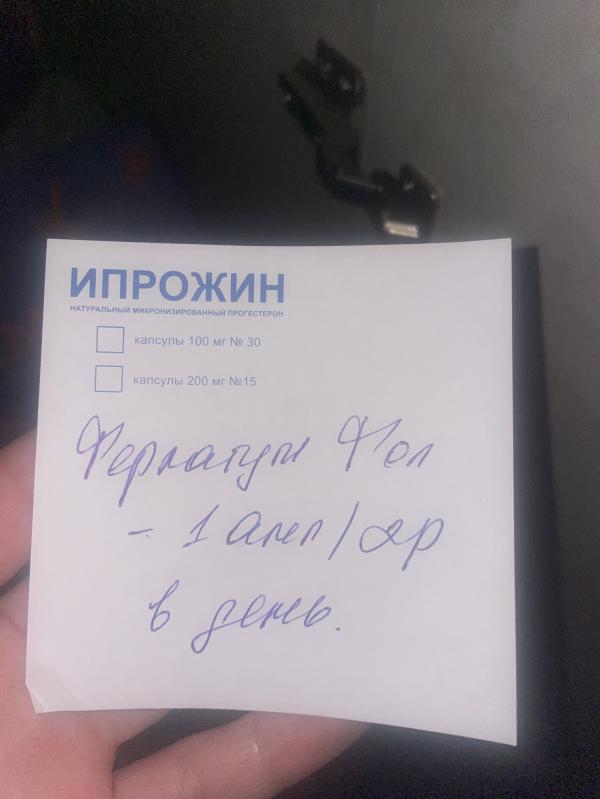 ИПРОЖИН
НАТУРАЛЬНЫЙ МИКРОНИЗИРОВАННЫЙ ПРОГЕСТЕРОН
капсулы 100 мг № 30
капсулы 200 мг №15
Ферлатум Фол
- 1 амп /
в день.